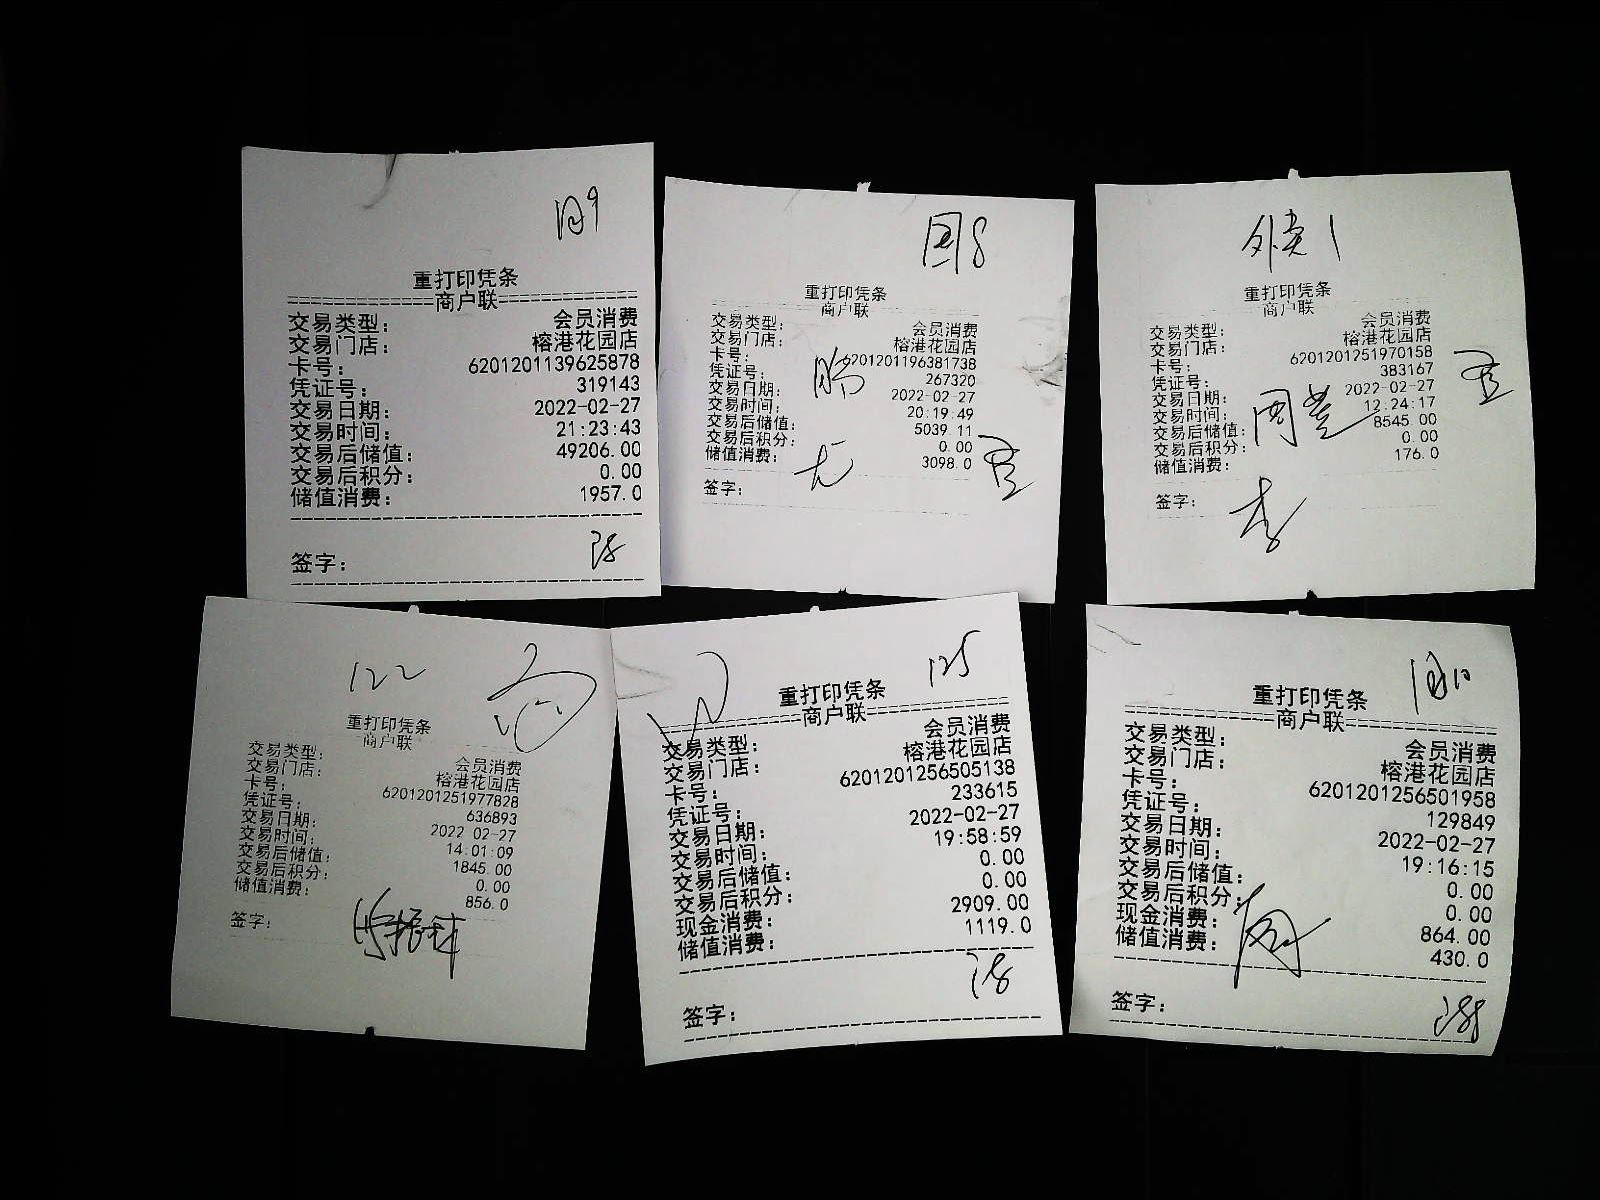 重打印凭条
商户联
交易类型： 会员消费
交易门店： 榕港花园店
卡号： 6201201139625878
凭证号： 319143
交易日期： 2022-02-27
交易时间： 21:23:43
交易后储值： 49206.00
交易后积分： 0.00
储值消费： 1957.0
签字：
8
重打印凭条
商户联
交易类型： 会员消费
交易门店： 榕港花园店
卡号： 6201201196381738
凭证号： 267320
交易日期： 2022-02-27
交易时间： 20:19:49
交易后储值： 5039.11
交易后积分： 0.00
储值消费： 3098.0
签字：
外卖1
重打印凭条
商户联
交易类型： 会员消费
交易门店： 榕港花园店
卡号： 6201201251970158
凭证号： 383167
交易日期： 2022-02-27
交易时间： 12:24:17
交易后储值： 8545.00
交易后积分： 0.00
储值消费： 176.0
签字：
李
122
重打印凭条
商户联
交易类型： 会员消费
交易门店： 榕港花园店
卡号： 6201201251977828
凭证号： 636893
交易日期： 2022-02-27
交易时间： 14:01:09
交易后储值： 1845.00
交易后积分： 0.00
储值消费： 856.0
签字：
125
重打印凭条
商户联
交易类型： 会员消费
交易门店： 榕港花园店
卡号： 6201201256505138
凭证号： 233615
交易日期： 2022-02-27
交易时间： 19:58:59
交易后储值： 0.00
交易后积分： 0.00
现金消费： 2909.00
储值消费： 1119.0
签字：
重打印凭条
商户联
交易类型： 会员消费
交易门店： 榕港花园店
卡号： 6201201256501958
凭证号： 129849
交易日期： 2022-02-27
交易时间： 19:16:15
交易后储值： 0.00
交易后积分： 0.00
现金消费： 864.00
储值消费： 430.0
签字：